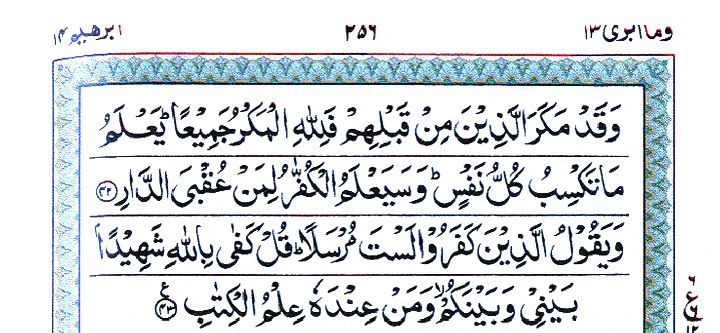 وما ابرئ ١٣
٢٥٦
ابرهيم ١٤
وَقَدْ مَكَرَ الَّذِيْنَ مِنْ قَبْلِهِمْ فَلِلّٰهِ الْمَكْرُ جَمِيْعًا ؕ يَعْلَمُ
مَا تَكْسِبُ كُلُّ نَفْسٍ ؕ وَسَيَعْلَمُ الْكُفّٰرُ لِمَنْ عُقْبَى الدَّارِ ﴿۴۲﴾
وَيَقُوْلُ الَّذِيْنَ كَفَرُوْا لَسْتَ مُرْسَلًا ؕ قُلْ كَفٰى بِاللّٰهِ شَهِيْدًۢا
بَيْنِيْ وَبَيْنَكُمْ ۙ وَمَنْ عِنْدَهٗ عِلْمُ الْكِتٰبِ ﴿۴۳﴾ ع